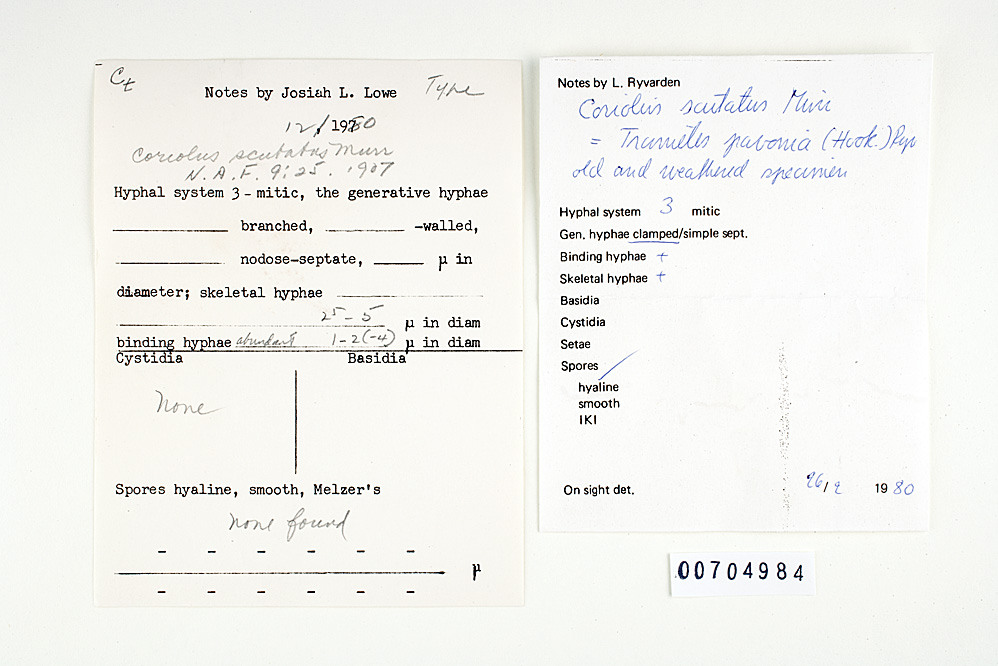 Ct
Notes by Josiah L. Lowe Type
12/ 1980
Coriolus scutatus Murr
N.A.F. 9:25. 1907
Hyphal system 3-mitic, the generative hyphae
branched, -walled,
nodose-septate, µ in
diameter; skeletal hyphae
25-5 µ in diam
binding hyphae abundant 1-2(-4) µ in diam
Cystidia Basidia
None
Spores hyaline, smooth, Melzer's
none found
- - - - - -
µ
- - - - - -
Notes by L. Ryvarden
Coriolus scutatus Murr
= Trametes pavonia (Hook.) Ryv
old and weathered specimen
Hyphal system 3 mitic
Gen. hyphae clamped/simple sept.
Binding hyphae +
Skeletal hyphae +
Basidia
Cystidia
Setae
Spores /
hyaline
smooth
IKI
On sight det. 26/2 1980
00704984